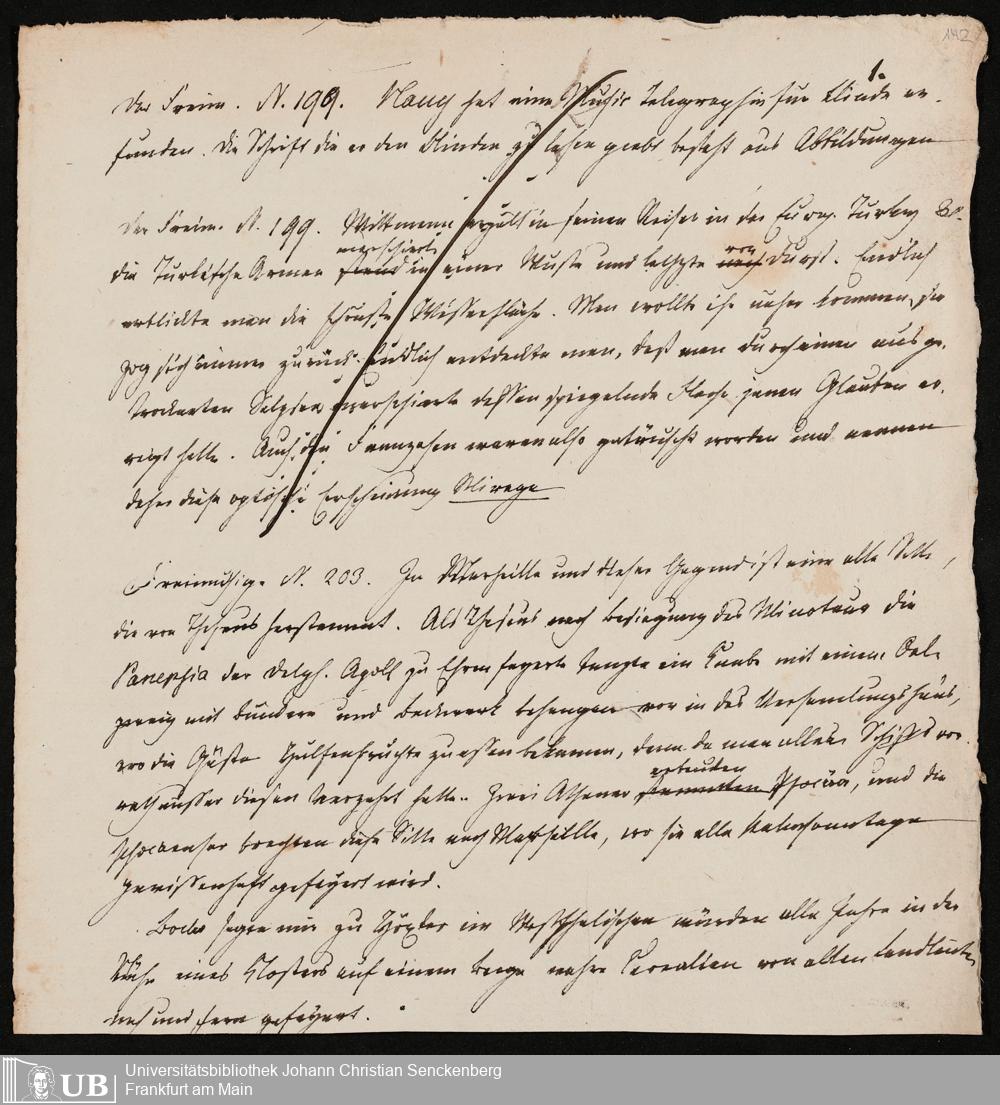 142
1.
Der Freim. N. 199. Hauy hat eine Musik Telegraphie für Blinde er-
funden. Die Schrift die er den Blinden zu lesen giebt besteht aus Abbildungen
Der Freim. N. 199. Wittmann erzält in seinen Reisen in der Europ. Turkey
die Turkische Armee marschierte in einer Wuste und lechzte von Durst. Endlich
erblickte man die schönste Wasserfläche. Man wollte ihr naher kommen, sie
zog sich immer zurück. Endlich entdeckte man, daß man durch einen ausge-
trockneten Salzsee marschierte dessen spiegelnde Flache jenen Glauben er-
regt hatte. Auch die Franzosen waren also getäuscht worden und nennen
daher diese optische Erscheinung Mirage
Freimuthig. N. 203. In Marseille und dieser Gegend ist eine alte Sitte,
die von Theseus herstammt. Als Theseus nach Besiegung des Minotaur die
Panepsia der Delph. Apoll zu Ehren feyerte tanzte ein Knabe mit einem Oel-
zweig mit Bändern und Backwerk behangen vor in das Versamlungshaus,
wo die Gäste Hulsenfruchte zu essen bekamen, denn da man allen Schiffsvor-
rath ausser diesen verzehrt hatte. Zwei Athener erbauten Phocäa, und die
Phocaenser brachten diese Sitte nach Marseille, wo sie alle Palmsonntage
gewissenhaft gefeyert wird.
sagte mir zu Höxter im Westphälischen würden alle Jahre in der
Nähe eines Klosters auf einem Berge wahre Cerealien von allen Landleuten
nah und fern gefeyert.
UB
Universitätsbibliothek Johann Christian Senckenberg
Frankfurt am Main